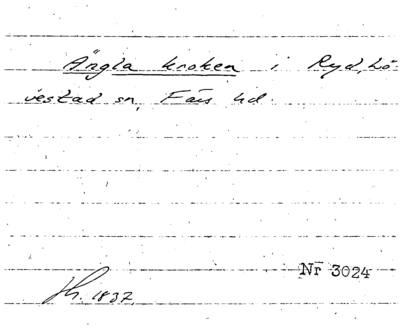 Ängla kroken i Ryd, Lö-
vestad sn, Färs hd.
Nr 3024
1837